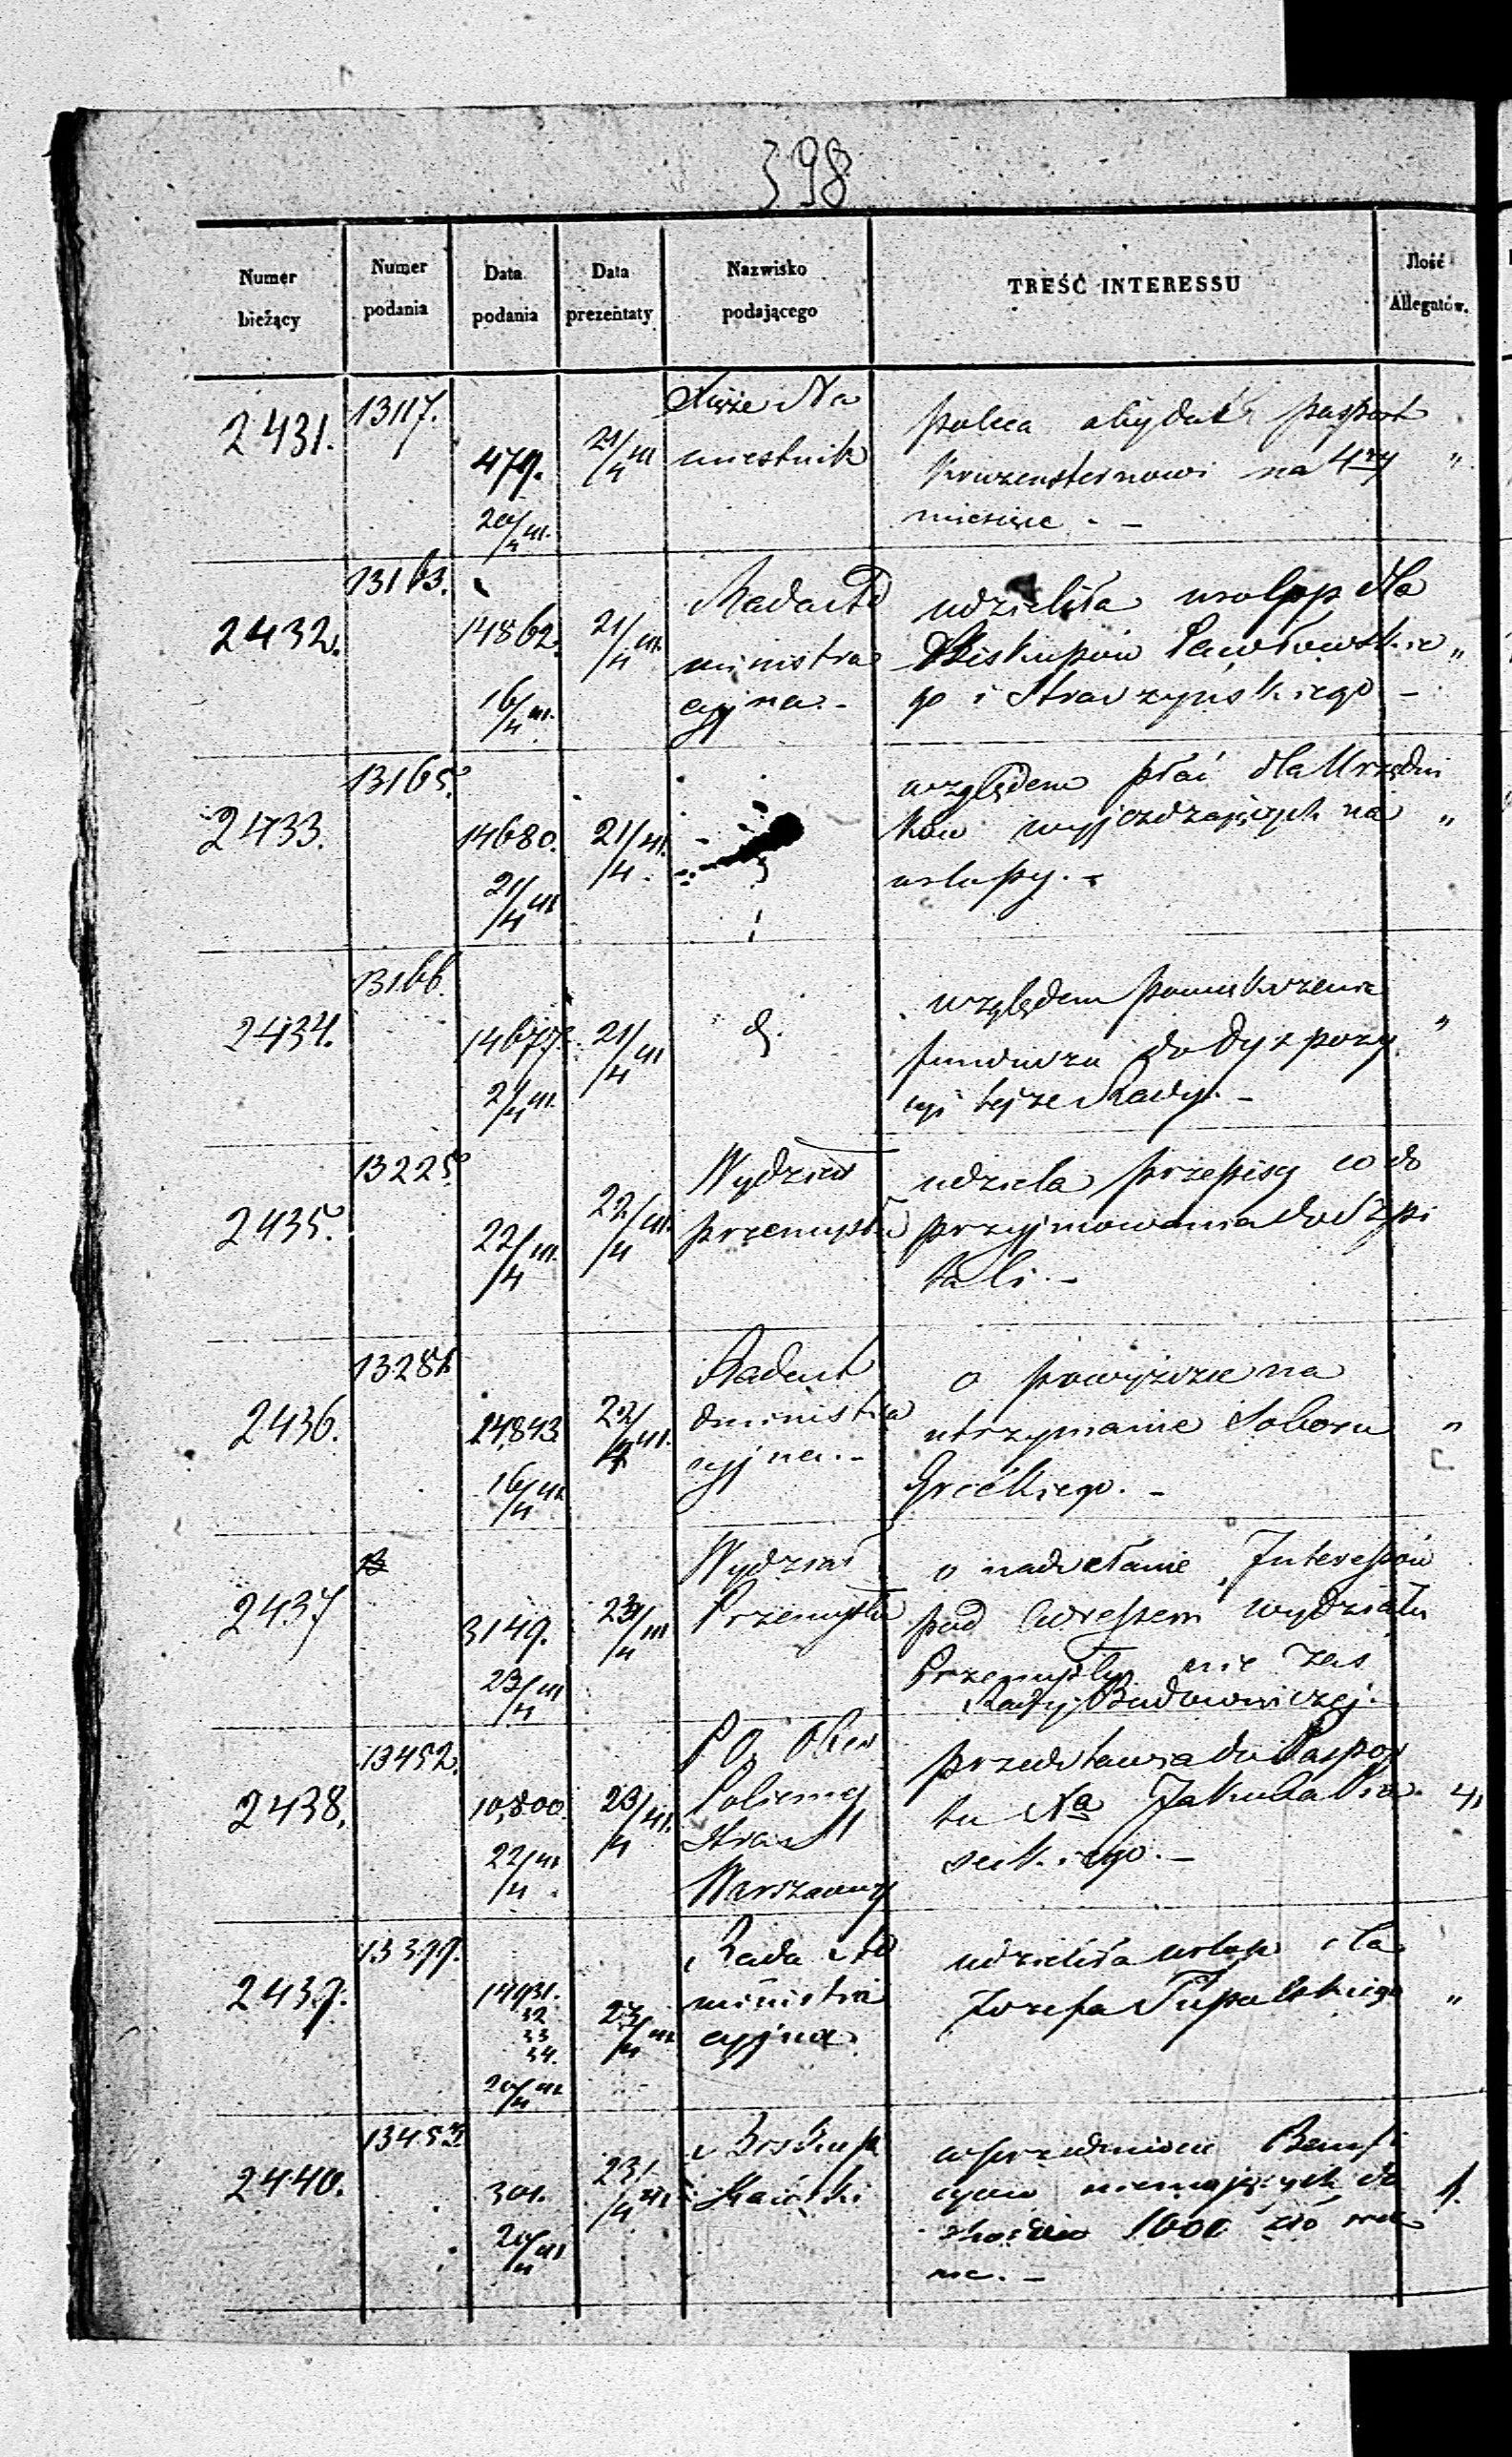 398
Numer bieżący
Numer podania
Data podania
Data prezentaty
Nazwisko podającego
TREŚĆ INTERESSU
Ilość Allegatów.
2431.
13117.
479.
20/4 III.
21/4 III
Xiąże Na
miestnik
poleca aby dać paszport
Kruzensternowi na 4ry
miesiące. -
"
2432.
13163.
14862.
16/4 III.
21/4 III.
Rada Ad
ministra
cyjna. -
udzieliła urlopp dla
Biskupów Pawłowskie
go i Straszyńskiego -
"
2433.
13165.
14680.
21/4 III
21/4 III.
względem płac dla Urzędni
ków wyjezdzających na
urlopy. -
"
2434.
13166.
14677.
21/4 III.
21/4 III
d.
względem powiększenia
funduszu do dyspozy
cyi tejże Rady. -
"
2435.
13225.
22/4 III.
22/4 III.
Wydział
przemysłu
udziela przepisy co do
przyjmowania do Szpi
tali. -
2436.
13281.
14,843.
16/4 III
22/4 III.
Rada A
dministra
cyjna. -
o powyższe na
utrzymanie Soboru
Greckiego. -
"
2437
13
3149.
23/4 III
23/4 III
Wydział
Przemysłu
o nadsełanie Interessów
pod Adressem wydziału
Przemysłu nie zaś
Rady Budowniczej.
2438.
13452.
10,800.
22/4 III
23/4 III.
P. O. Ober
Policmaj
stra M
Warszawy
przedstawia do Paszpor
tu Na Jakuba
4.
2439.
13399.
14931.
32
33
34.
20/4 III
23/4 III
Rada Ad
ministra
cyjna.
udzieliła urlop dla
Jozefa Tupalskiego
"
2440.
13453
301.
20/4 III
23/4 III.
Biskup
w przedmiocie Benefi
cyów niemających do
chodów 1000 zło rocz
nie. -
1.